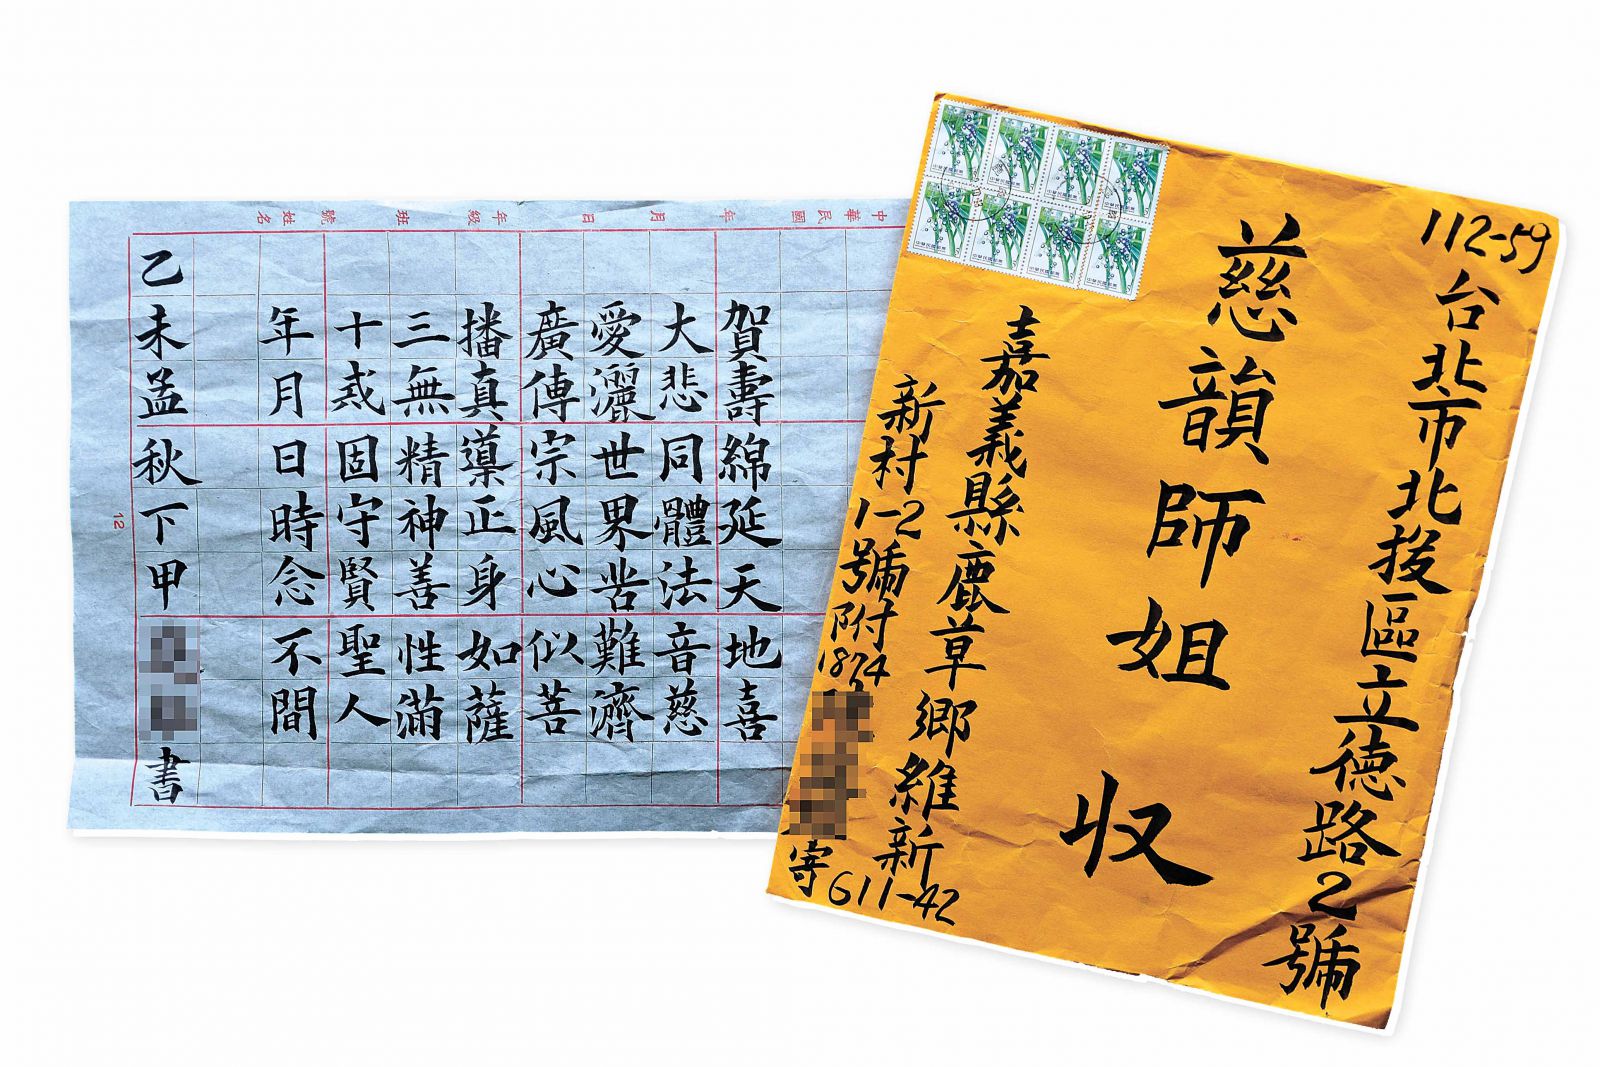 中華民國 年 月 日 年級 班 號 姓名
賀壽綿延天地喜
大悲同體法音慈
愛灑世界苦難濟
廣傳宗風心似菩
播真導正身如薩
三無精神善性滿
十戒固守賢聖人
年月日時念不間
乙未孟秋下甲
書
12
112-59
台北市北投區立德路2號
慈韻師姐 收
嘉義縣鹿草鄉維新
新村1-2號附1874
寄
611-42